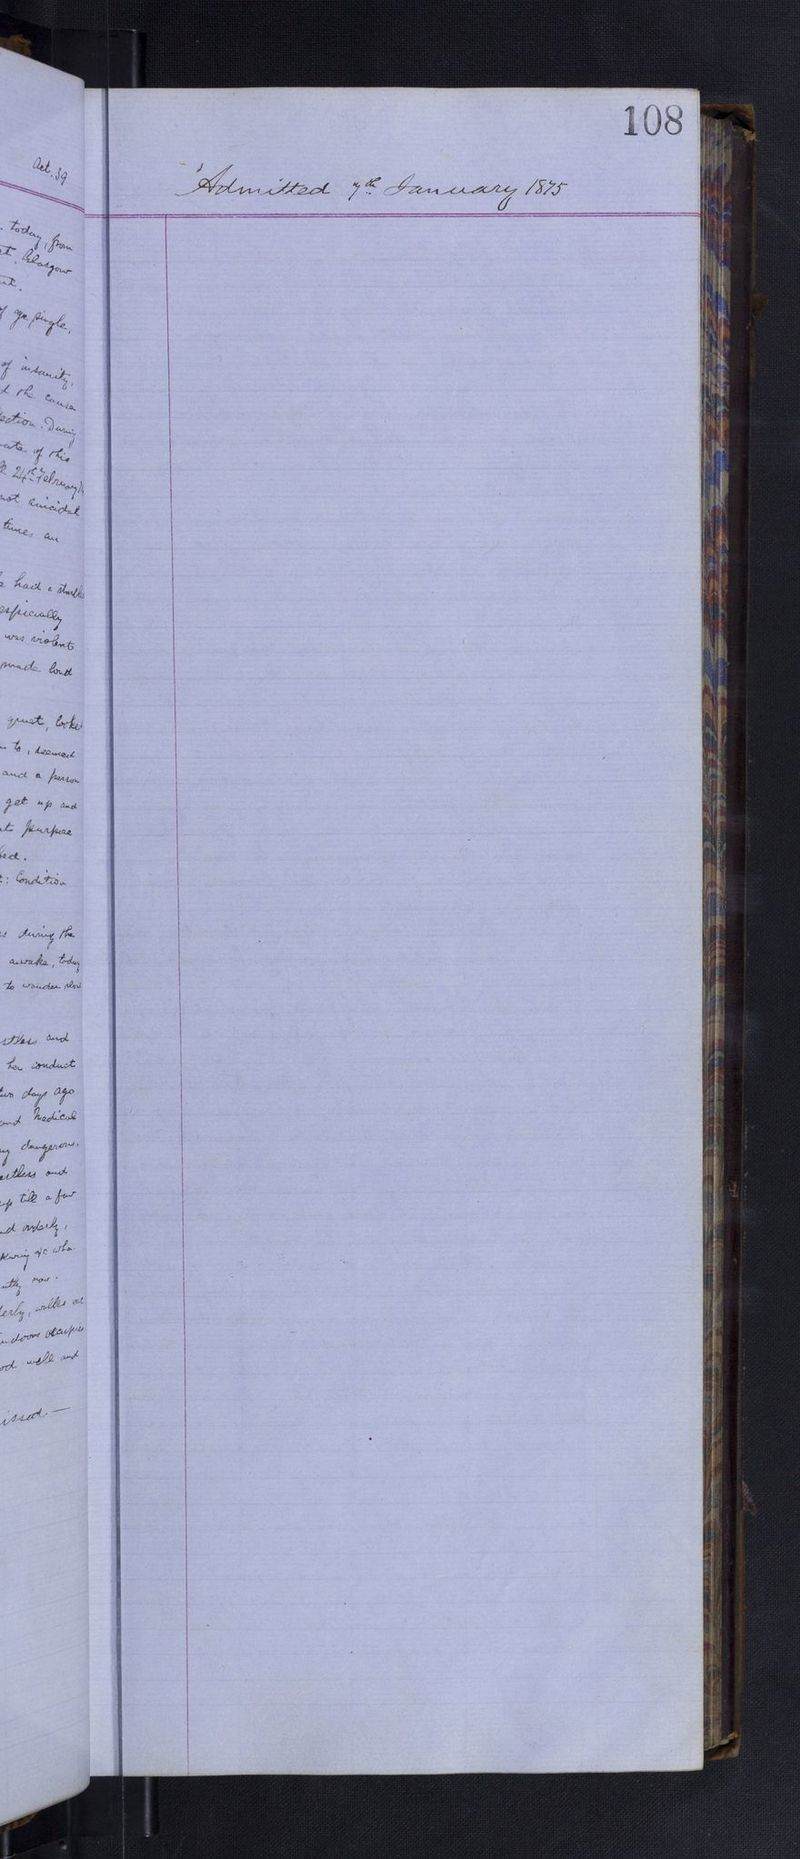 Aet. 39
today, from
Glasgow
single.
of insanity,
d the cause
ection. During
ate of this
24th February
not suicidal
times an
e had a
especially
was violent
made loud
quiet, looks
to, seemed
and a person
get up and
purpose
bed.
: Condition
during the
awake, today
to wander
stless and
her conduct
two days ago
and Medical
dangerous.
estless and
up till a few
nd orderly,
&c
now.
erly, walks
indoors
well and
issed —
108
Admitted 7th January 1875